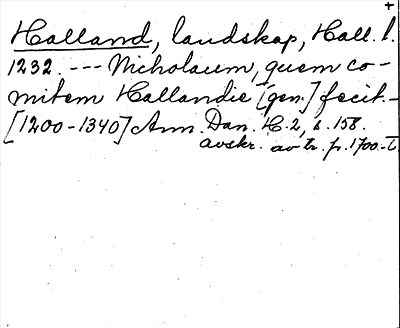 +
Halland, landskap, Hall. l.
1232. --- Nicholaum, quem co-
mitem Hallandie [gen.] fecit. -
[1200-1340] Ann. Dan. H. 2, s. 158.
avskr. av tr. fr. 1700-t.